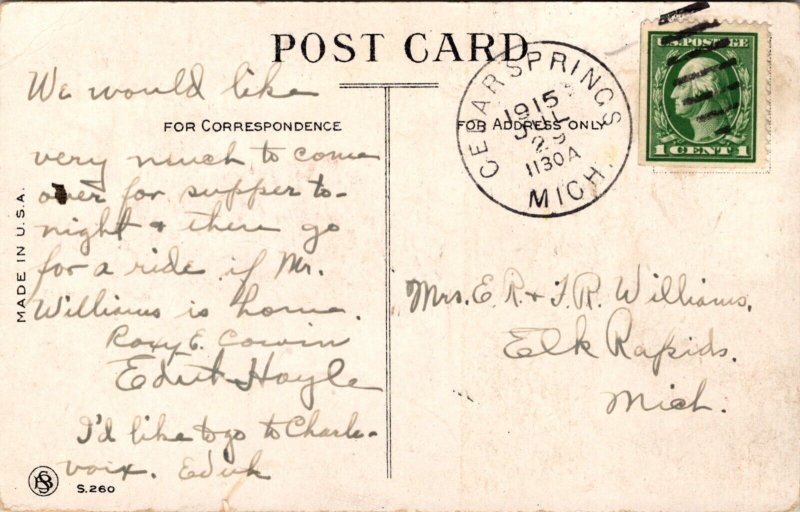 POST CARD
We would like
FOR CORRESPONDENCE
very much to come
over for supper to-
night & then go
for a ride if Mr.
Williams is home.
Roxy E. Cowin
Edith Hoyle
I'd like to go to Charle-
voix. Edith
MADE IN U.S.A.
S.260
FOR ADDRESS ONLY
CEDAR SPRINGS
1915
JUL
1130A
MICH.
U.S. POSTAGE
1 CENT 1
Mrs. E. R. & F. R. Williams,
Elk Rapids.
Mich.